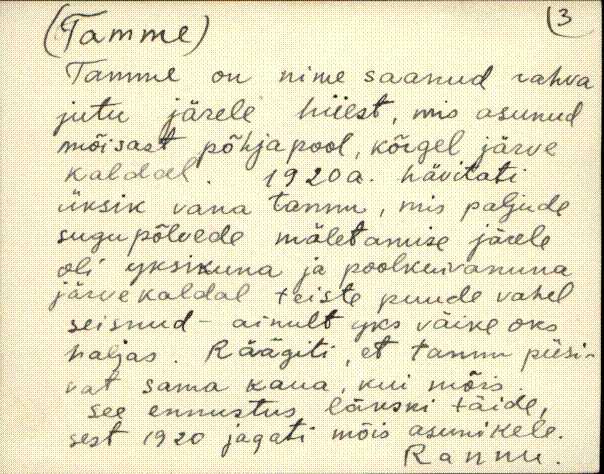 (Tamme) (3
Tamme on nime saanud rahva
jutu järele hiiest, mis asunud
mõisast põhjapool, kõrgel järve
kaldal. 1920a. hävitati
üksik vana tamm, mis paljude
sugupõlvede mäletamise järele
oli yksikuna ja poolkuivanuna
järvekaldal teiste puude vahel
seisnud - ainult yks väike oks
haljas. Räägiti, et tamm püsi-
vat sama kaua, kui mõis.
See ennustus läkski täide,
sest 1920 jagati mõis asunikele.
Rannu.